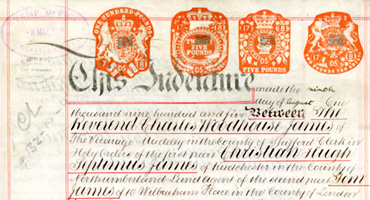 ONE HUNDRED POUNDS
FIVE POUNDS
FIVE POUNDS
05
05
This Indenture made the ninth
day of August One
thousand nine hundred and five Between The
Reverend Charles Woodhouse James of
The Vicarage Audley in the County of Stafford Clerk in
Holy Orders of the first part Christian Hugh
Septimus James of in the County of
Northumberland Land agent of the second part
James of 10 Wilbraham Place in the County of London